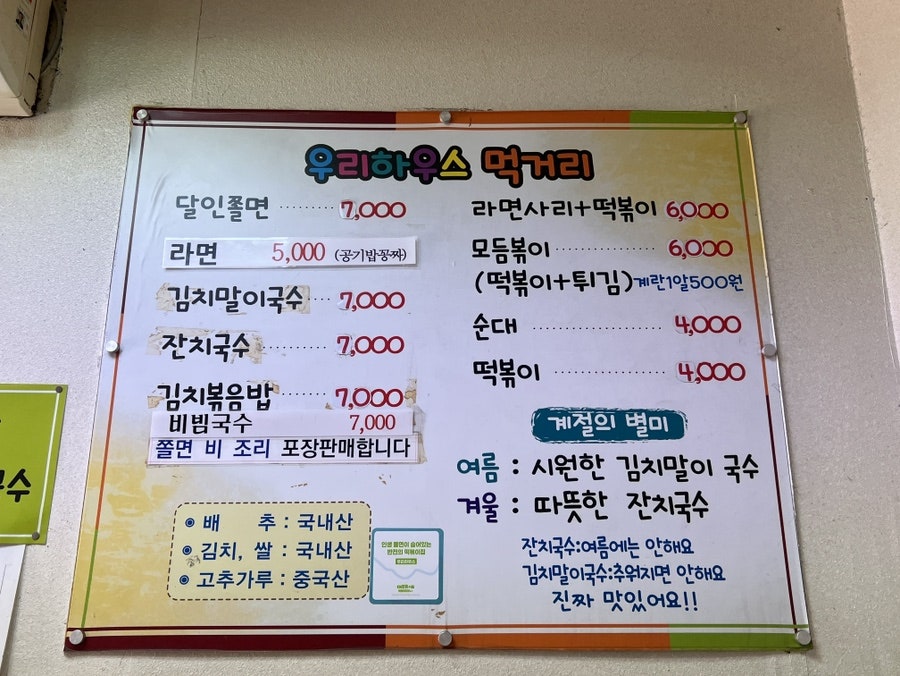 우리하우스 먹거리
달인쫄면 ········ 7,000
라면 5,000 (공기밥꽁짜)
김치말이국수 ··· 7,000
잔치국수 ········ 7,000
김치볶음밥 ······ 7,000
비빔국수 7,000
쫄면 비 조리 포장판매합니다
라면사리+떡볶이 6,000
모듬볶이 ·············· 6,000
(떡볶이+튀김) 계란1알500원
순대 ·················· 4,000
떡볶이 ·············· 4,000
계절의 별미
여름 : 시원한 김치말이 국수
겨울 : 따뜻한 잔치국수
잔치국수:여름에는 안해요
김치말이국수:추워지면 안해요
진짜 맛있어요!!
◉ 배 추 : 국내산
◉ 김치, 쌀 : 국내산
◉ 고추가루 : 중국산